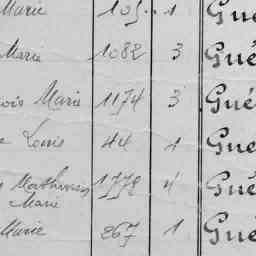 Marie 105 1 Gué
Marie 1082 3 Gué
ois Marie 1174 3 Gué
e Louis 44 1 Gue
Mathurin 1772 4 Gué
Marie
Marie 867 1 Gué